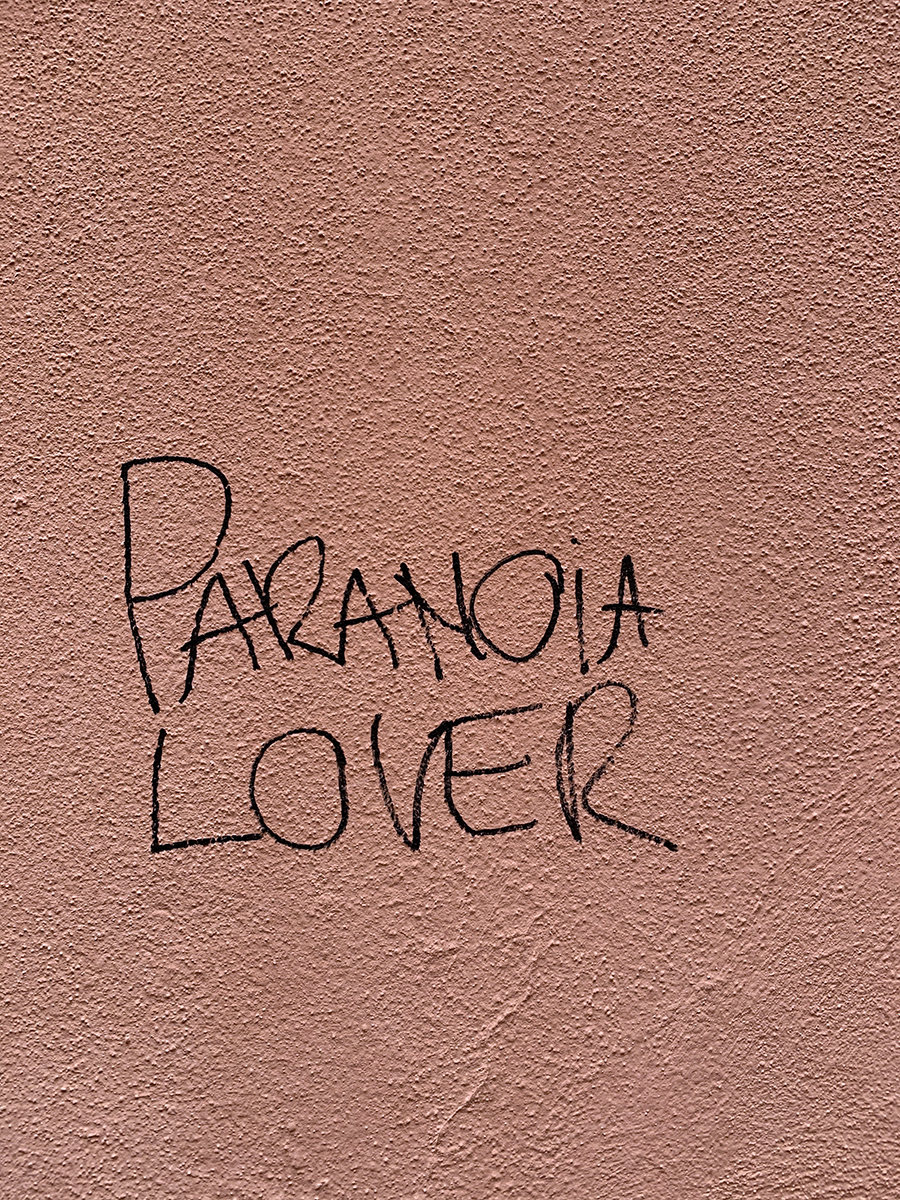 PARANOiA
LOVER